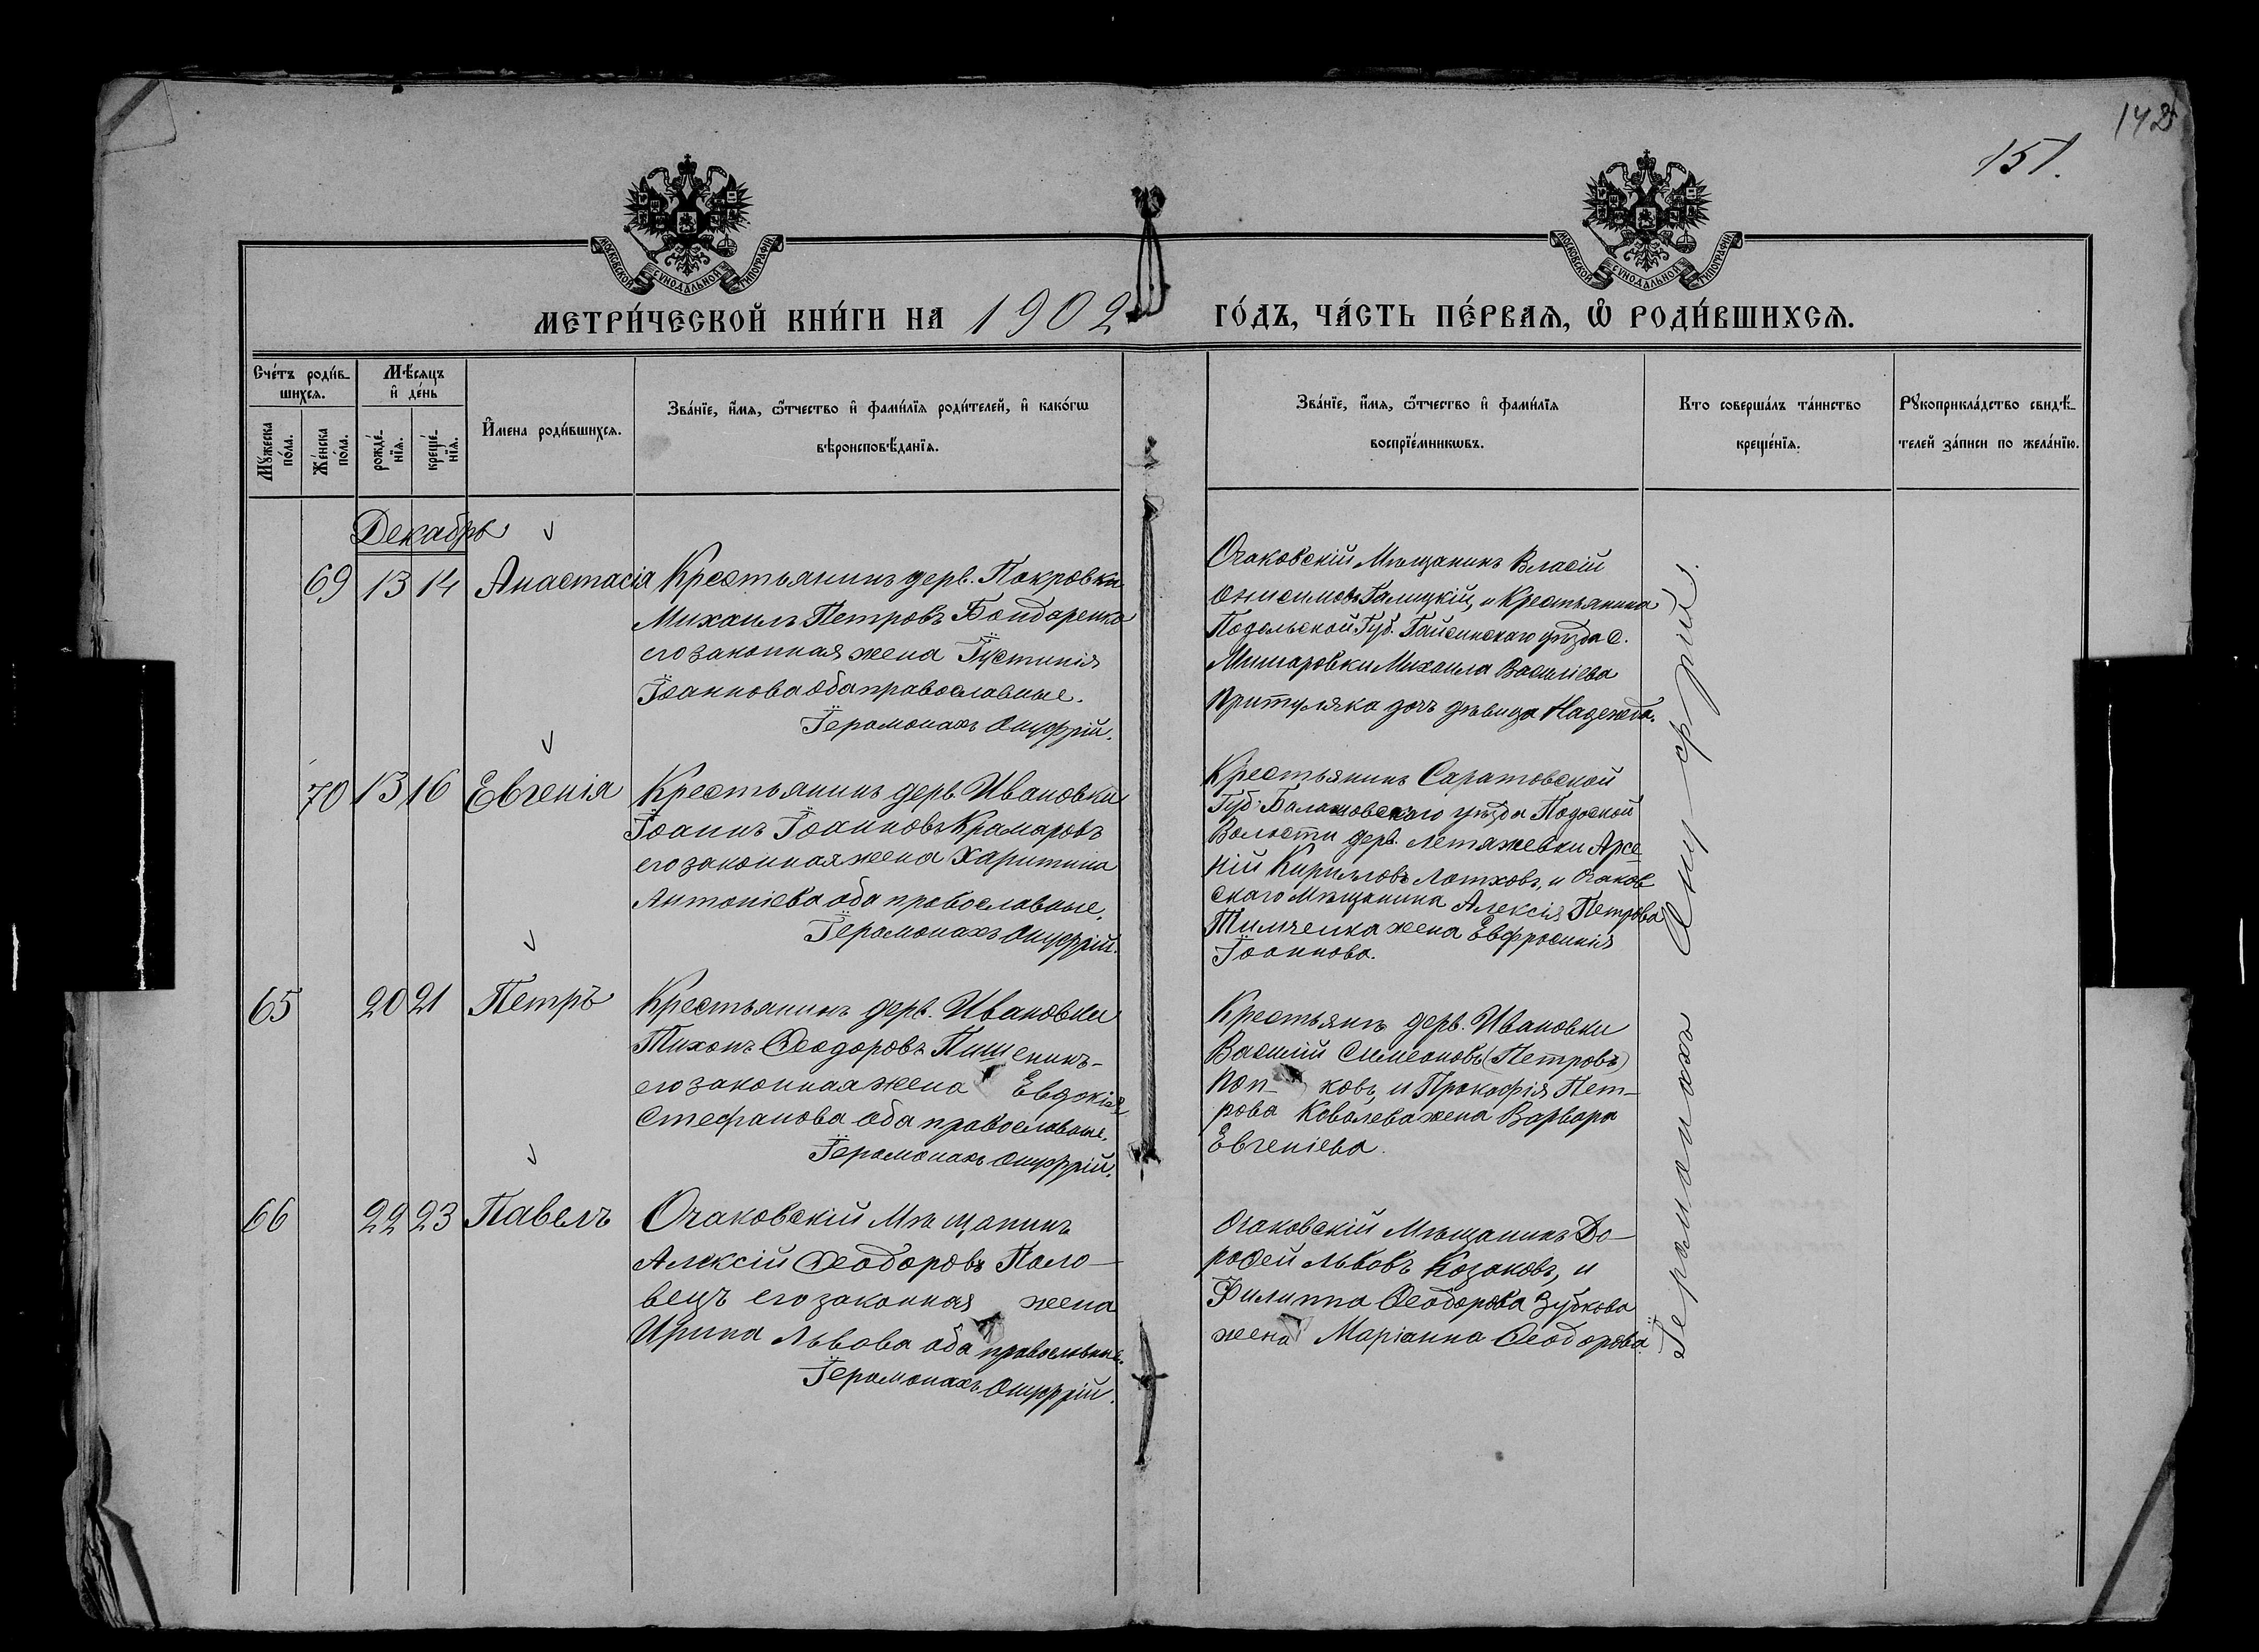 142
151.
МОСКОВСКОЙ СѴНОДАЛЬНОЙ ТИПОГРАФІИ
МОСКОВСКОЙ СѴНОДАЛЬНОЙ ТИПОГРАФІИ
МЕТРИ́ЧЕСКОЙ КНИ́ГИ НА 1902 ГО́ДЪ, ЧА́СТЬ ПЕ́РВАЯ, Ѽ РОДИ́ВШИХСЯ.
Сче́тъ роди́в-
шихся.
Мꙋ́жеска
по́ла.
Же́нска
по́ла.
Мѣ́сяцъ
и҆ де́нь
рожде́-
нїя.
креще́-
нїя.
И҆мена роди́вшихся.
Зва́нїе, и҆́мя, ѻ҆́тчество и҆ фами́лїя роди́телей, и҆ како́гѡ
вѣроисповѣ́данїя.
Зва́нїе, и҆́мя, ѻ҆́тчество и҆ фами́лїя
воспрїе́мникѡвъ.
Кто соверша́лъ та́инство
креще́нїя.
Рꙋкоприкла́дство свидѣ́-
телей за́писи по жела́нїю.
Декабрь
69 13 14 Анастасія
Крестьянинъ дерв. Покровки
Михаилъ Петровъ Бондаренко
его законная жена Іустинія
Іоаннова оба православные.
Іеромонахъ Онуфрій.
Очаковскій Мѣщанинъ Власій
Онисимовъ Галицкій, и Крестьянина
Подольской Губ. Гайсинскаго уѣзда С.
Михаила Василіева
Притуляка дочь дѣвица Надежда.
70 13 16 Евгенія
Крестьянинъ дерв. Ивановки
Іоаннъ Іоанновъ Крамаровъ
его законная жена Харитина
Антоніева оба православные.
Іеромонахъ Онуфрій.
Крестьянинъ Саратовской
Губ. Балашовскаго уѣзда
Волости дерв. Летяжевки Арсе-
ній Кирилловъ и Очаков
скаго Мѣщанина Алексія Петрова
Тимченка жена Евфросинія
Іоаннова.
65 20 21 Петръ
Крестьянинъ дерв. Ивановки
Тихонъ Ѳеодоровъ
его законная жена Евдокія
Стефанова оба православные.
Іеромонахъ Онуфрій.
Крестьянъ дерв. Ивановки
Василій Симеоновъ (Петровъ)
Поп- ковъ, и Прокофія Пет-
рова Ковалева жена Варвара
Евгеніева.
66 22 23 Павелъ
Очаковскій Мѣщанинъ
Алексій Ѳеодоровъ Поло-
вецъ его законная жена
Ирина Львова оба православные.
Іеромонахъ Онуфрій.
Очаковскій Мѣщанинъ До-
роѳей Львовъ Козаковъ, и
Филиппа Ѳеодорова Зубкова
жена Маріанна Ѳеодорова.
Іеромонахъ Онуфрій.